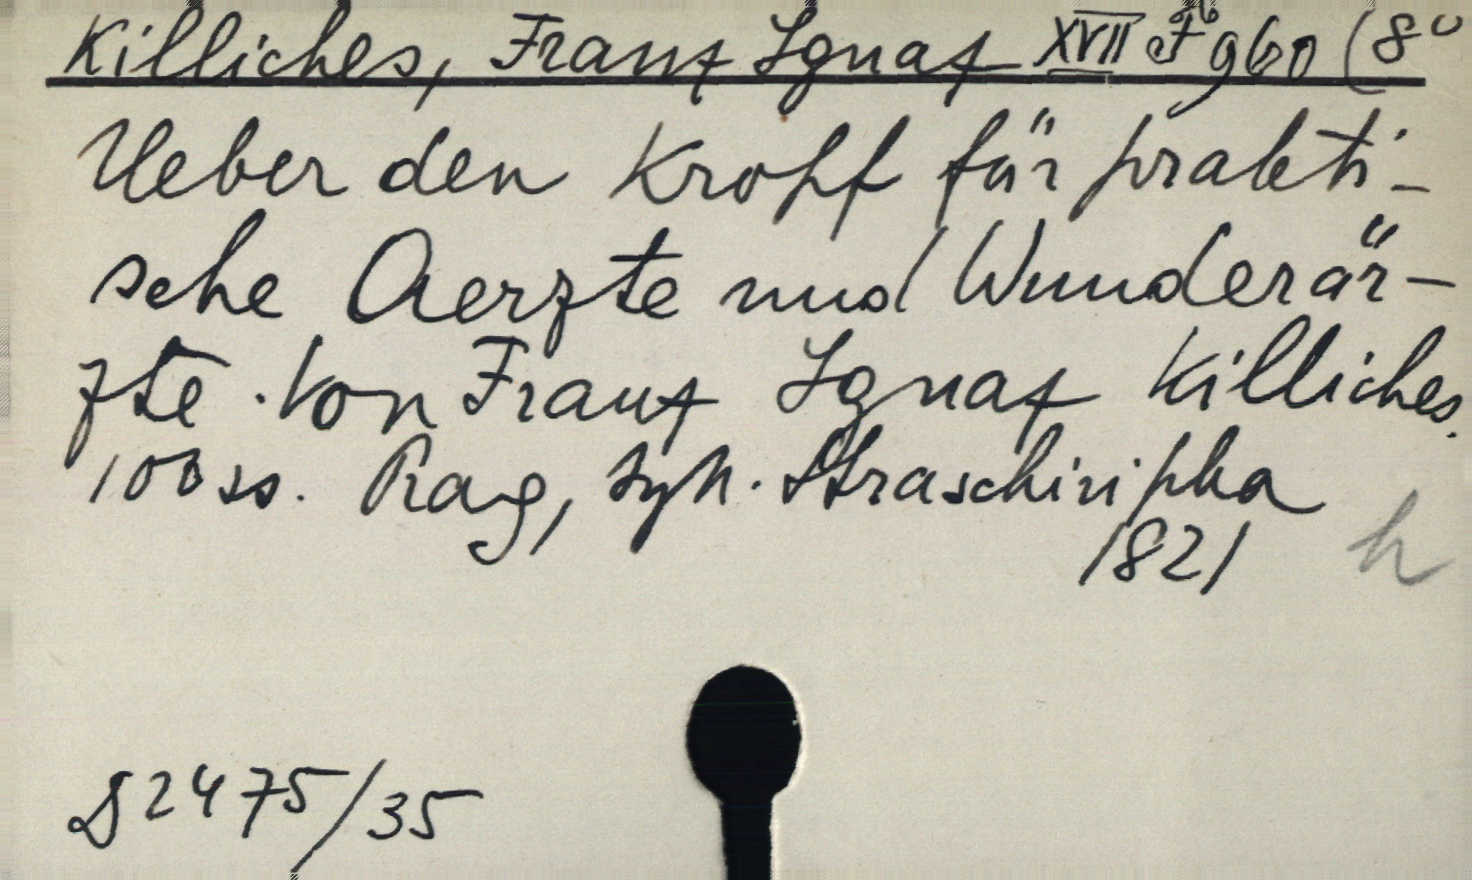 Killiches, Franz Ignaz XVII F 960 (8°
Ueber den Kropf für prakti-
sche Aerzte und Wunderär-
zte. Von Franz Ignaz Killiches.
100 ss. Prag, typ. Straschiripka
1821
h
S 2475/35